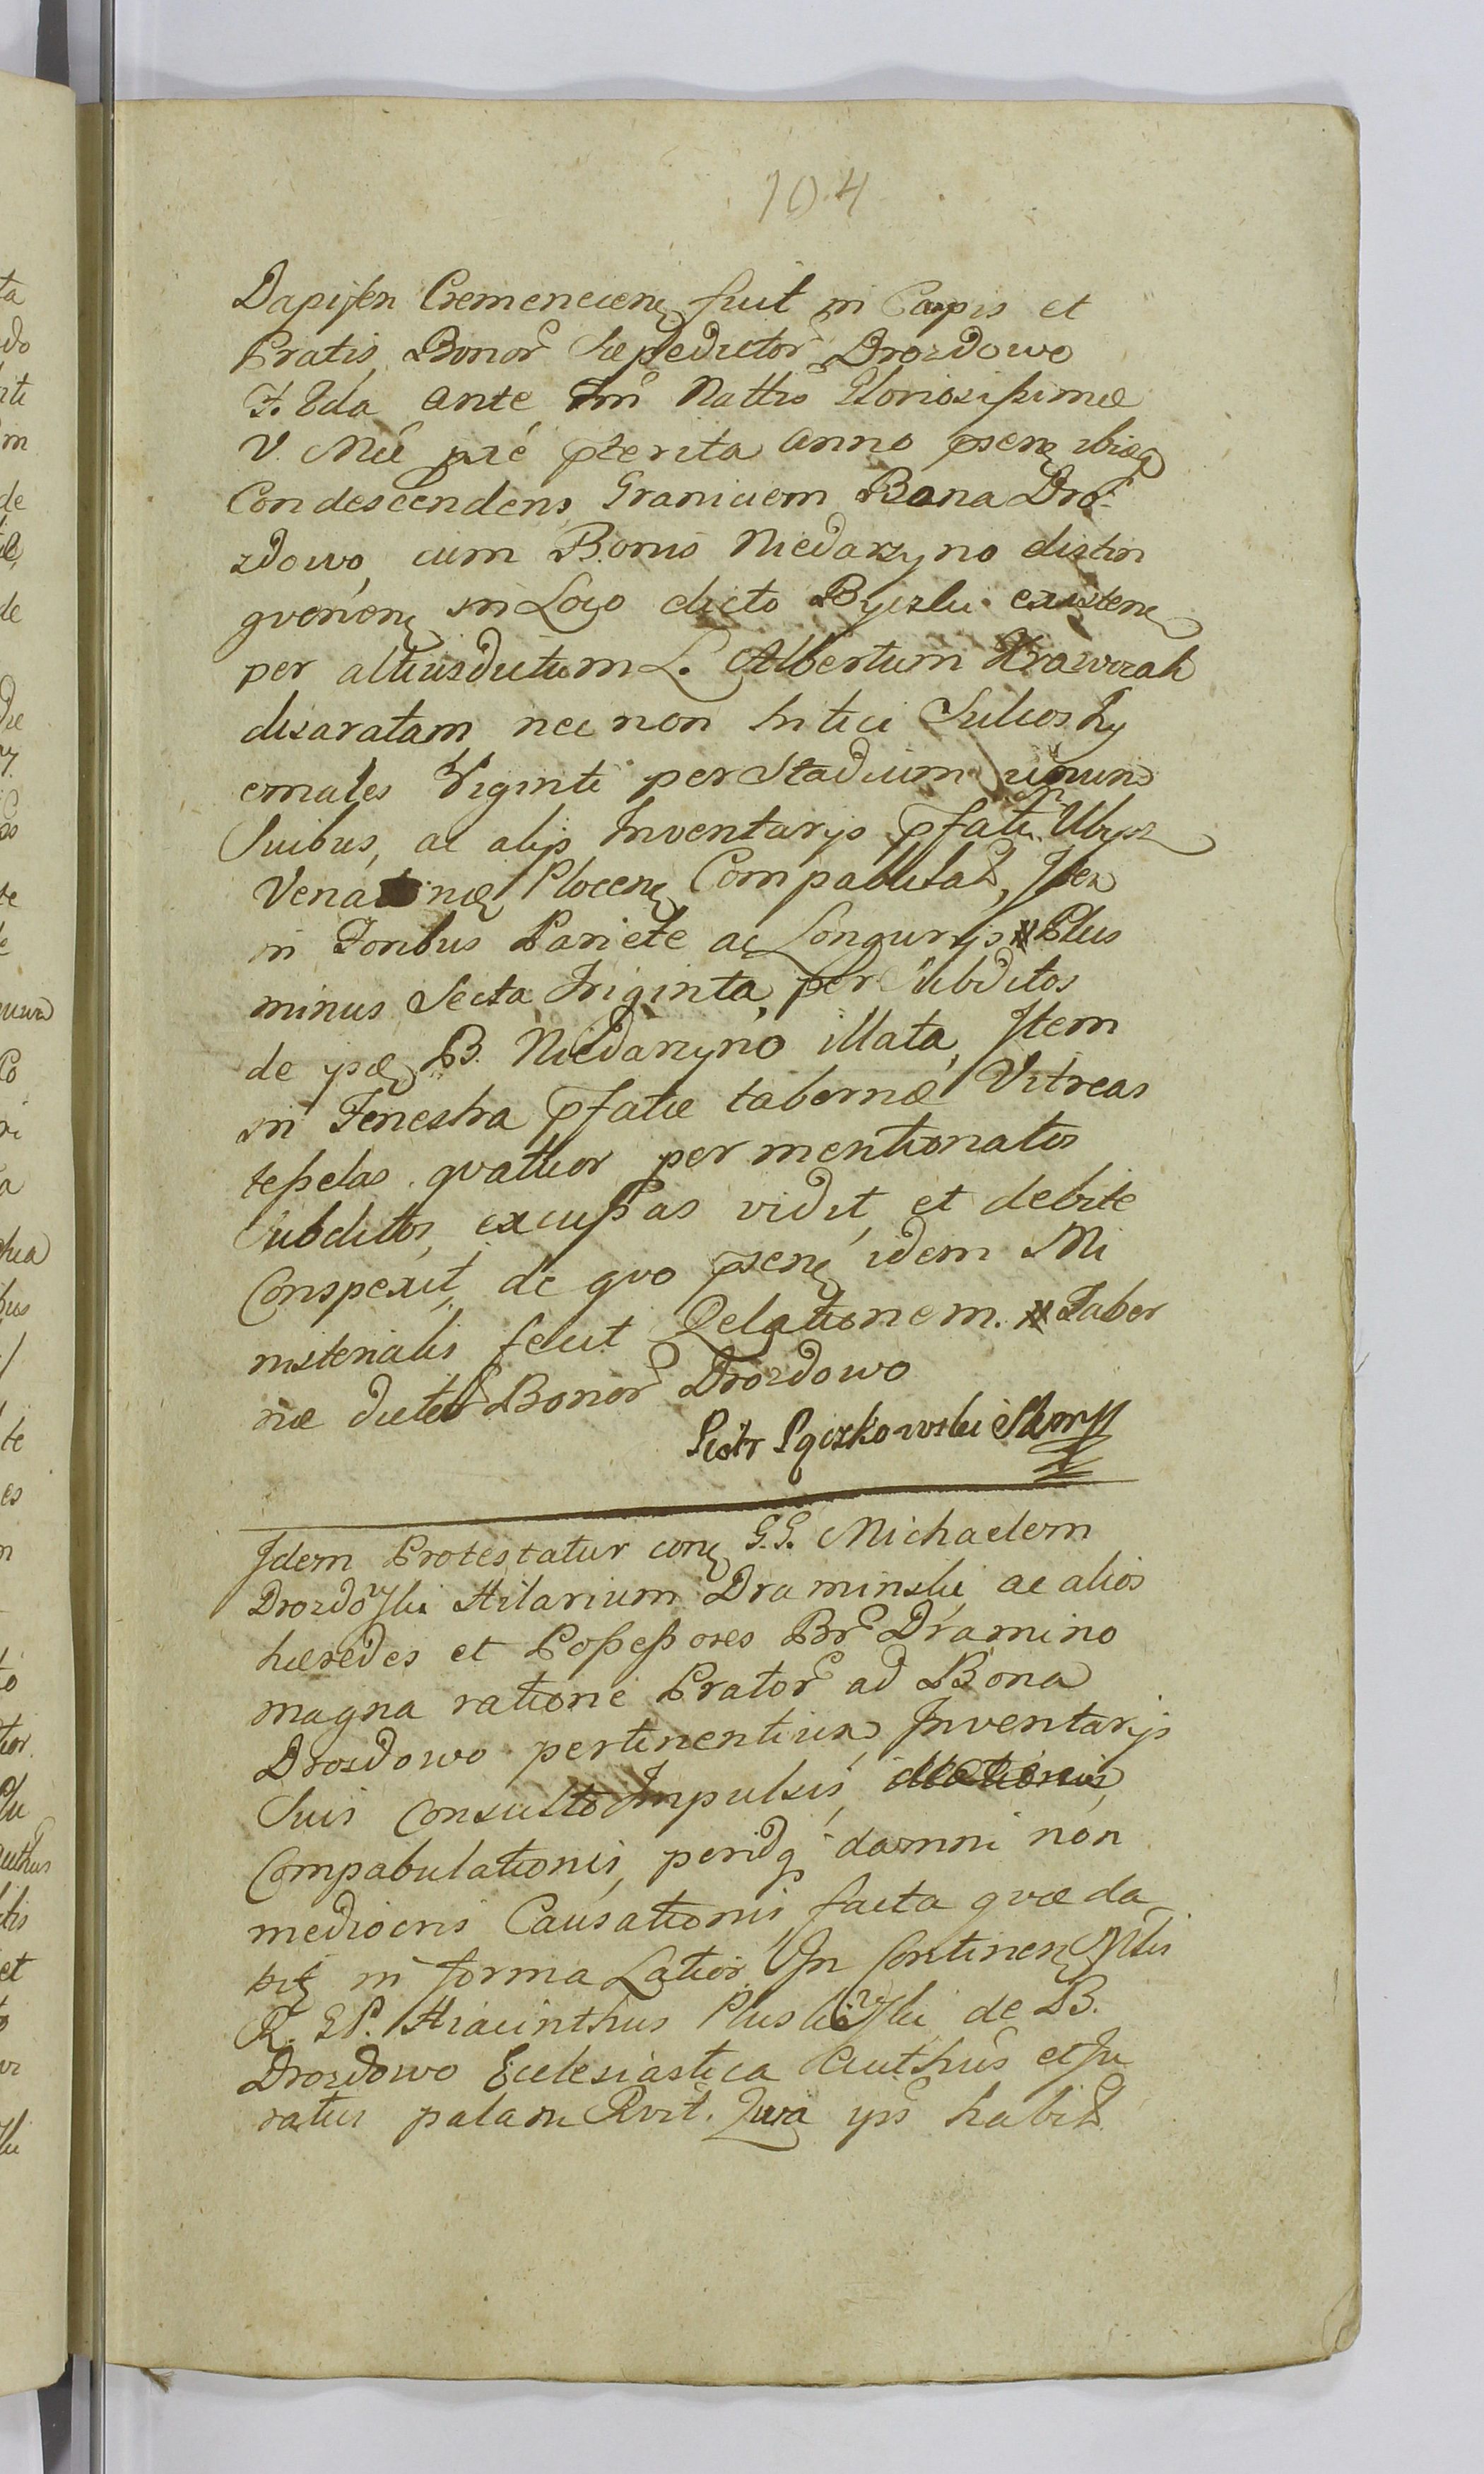 104
Dapiferi Cremenecens fuit in Campis et
Pratis Bonor Saepedictor Drozdowo
F. 2da ante Fm Nattis Gloriosissimae
V. Mae pxe pterita anno psens ibiq
Condescendens Graniciem Bona Dro-
zdowo, cum Bonis Niedarzyno distin
gvenens in Loco dicto Byczki existens
per altiusdictum L. Albertum Krawczak
disaratam, nec non tritici Sulcos hy
emales Viginti per Stadium unum
Suibus, ac alijs Inventarijs pfati
Venationae Plocens Compabulat, Item
in Foribus Pariete ac Longurijs # Plus
minus Secta Triginta, per Subditos
de ips B. Niedarzyno illata, Item
in Fenestra pfatae tabernae Vitreas
tesselas quatuor per mentionatos
Subditos, excussas vidit, et debite
Conspexit, de quo psens idem Mi
nisterialis fecit Relationem. # Taber
nae dictor Bonor Drozdowo
Piotr Pączkowski
Idem Protestatur cons G.G. Michaelem
Drozdowski Hilarium Draminski, ac alios
haeredes et Possessores Br Dramino
magna ratione Prator ad Bona
Drozdowo pertinentium Inventarijs
Suis Consulto Impulsis, illationis,
Compabulationis, peridq damni non
mediocris Causationis facta quae da
bit in forma Latior In Continen Nblis
R. G. Hiacinthus Pluskowski de B.
Drozdowo Ecclesiastica Authus et Ju
ratus palam Rvit. Quia ips habit